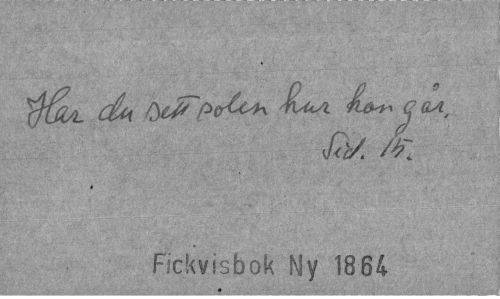 Har du sett solen hur hon går.
Sid. 15.
Fickvisbok Ny 1864